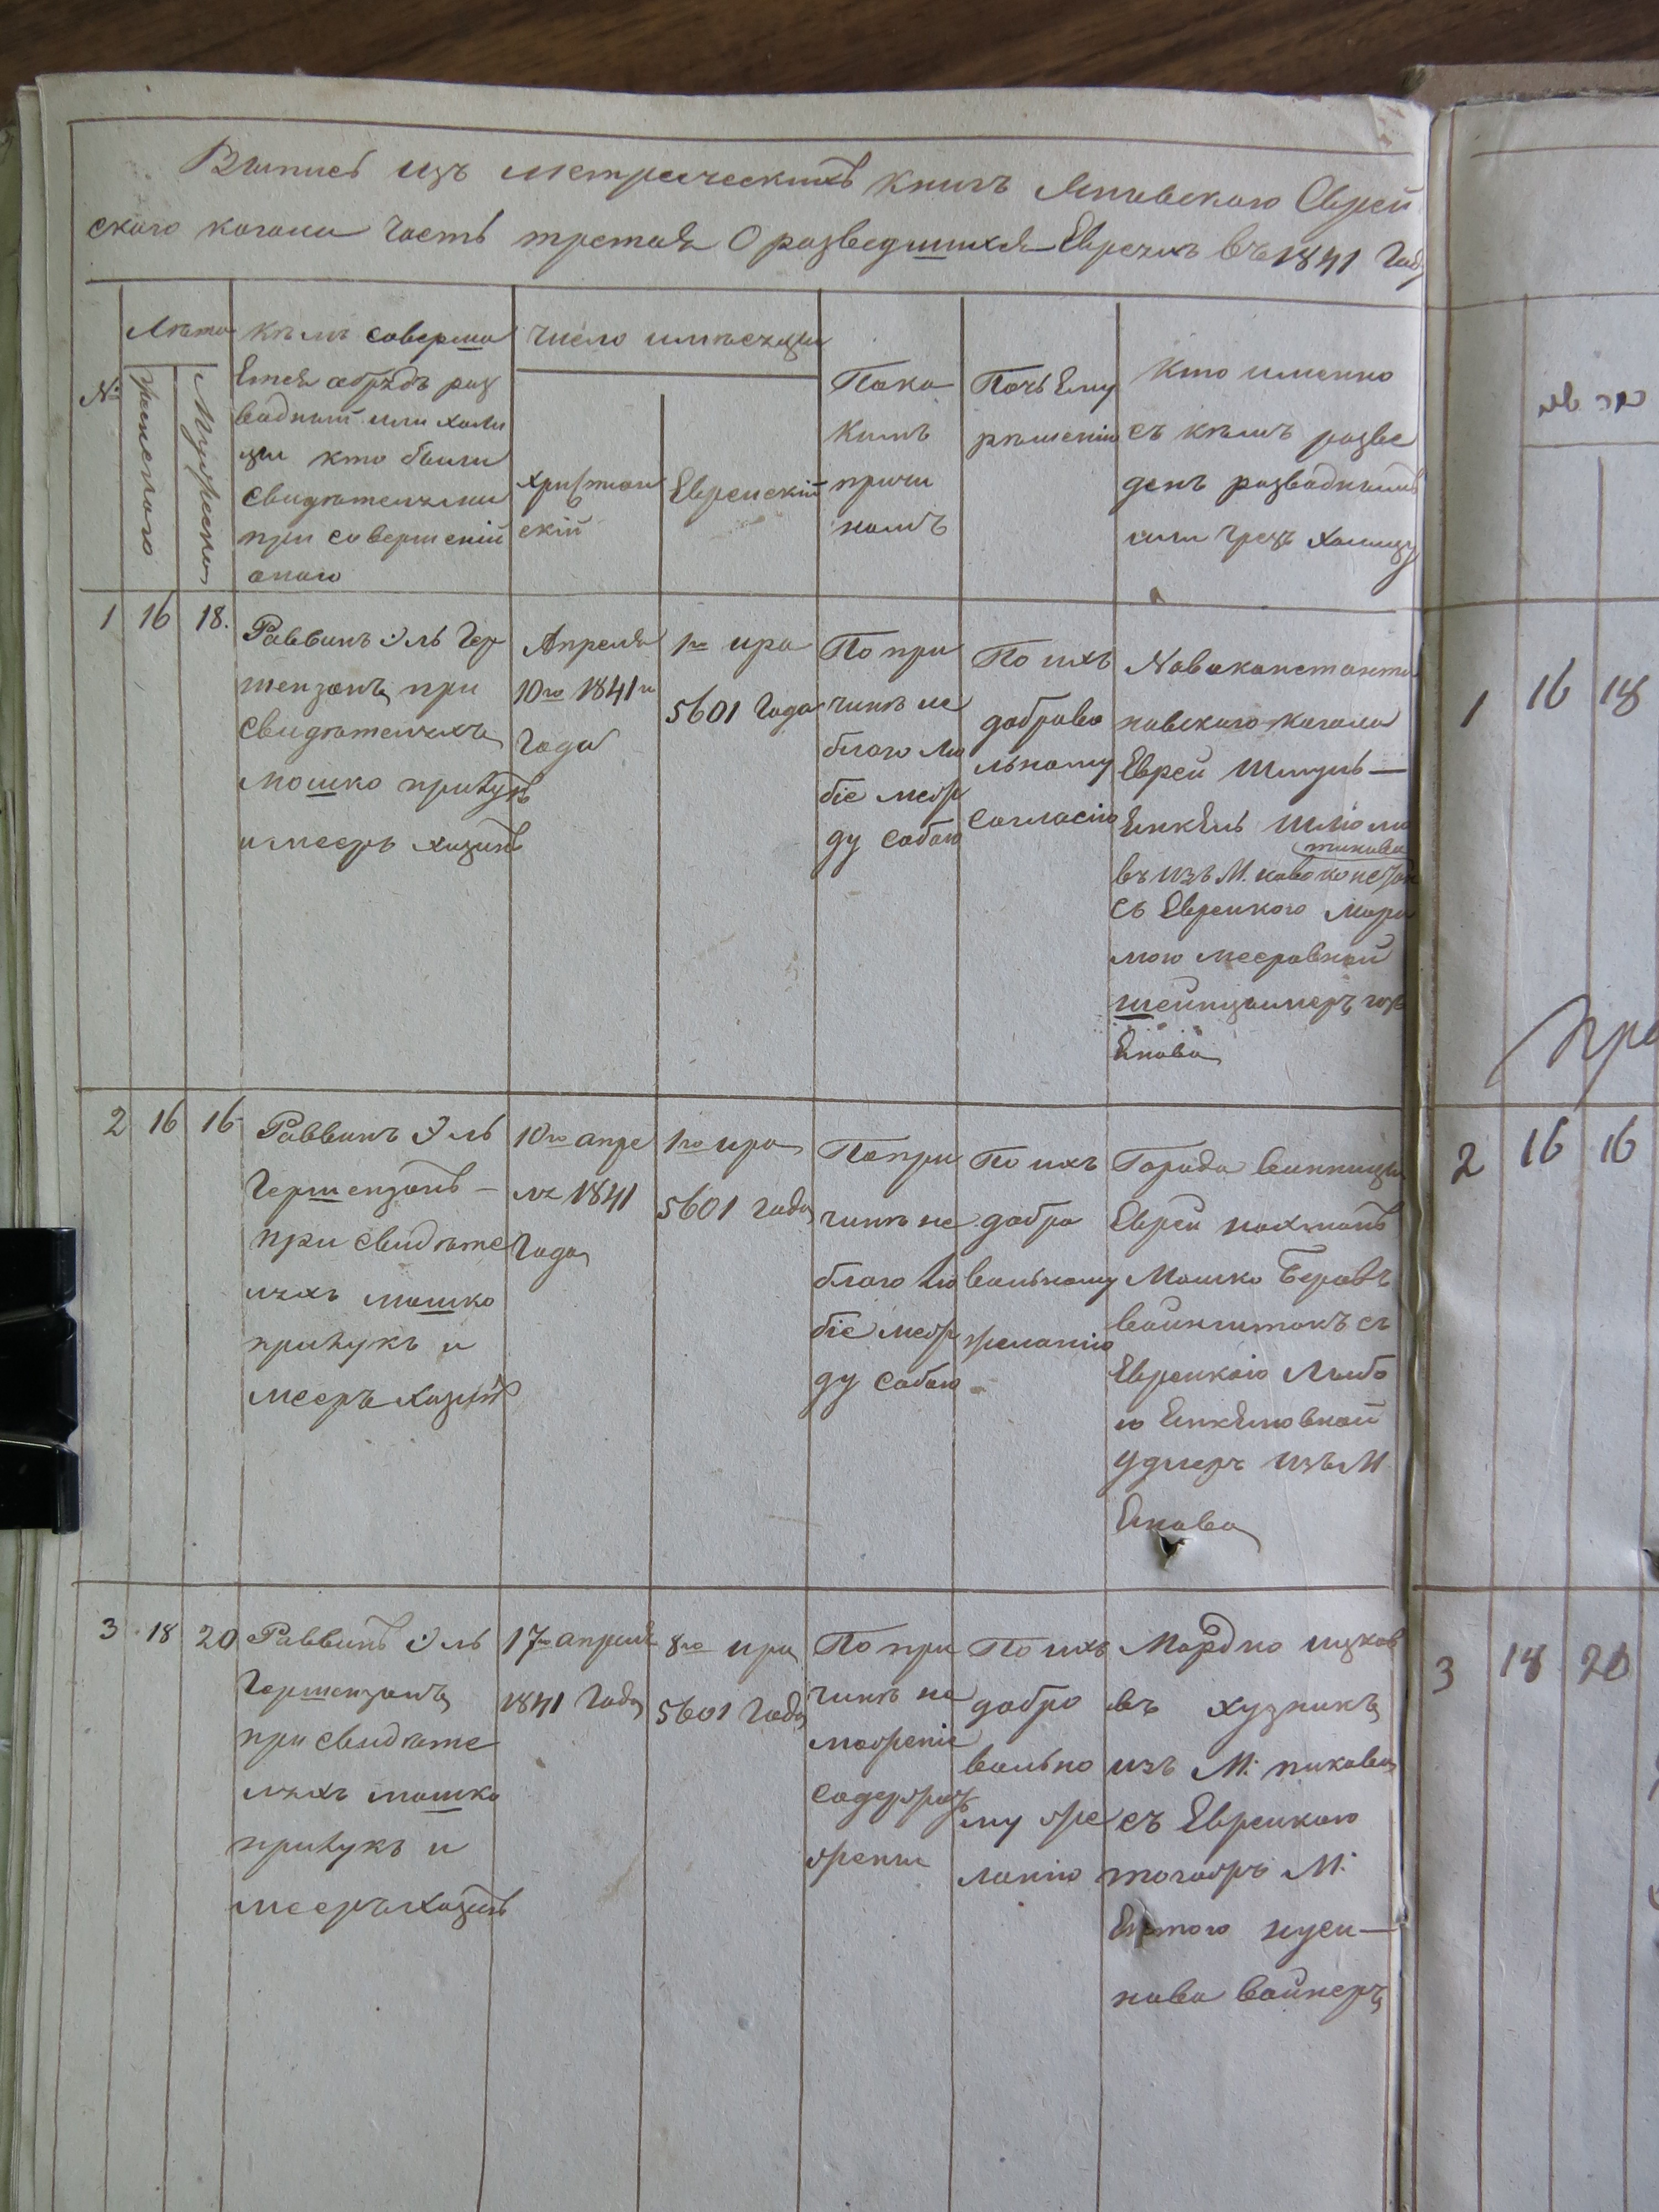 Выпись изъ метрическихъ книгъ Яновского Еврей
ского кагала Часть третая О разведшихся Евреяхъ въ 1841 Году
№
Лѣта
Женского
Мужеского
Кѣмъ соверша
Ется обрядъ раз
водный или халы
цы кто были
свидѣтелями
при совершеній
оного
Число имѣсяцы
Християн
скій
Еврейскій
Пока
кимъ
причи
намъ
Почьему
рѣшенію
Кто именно
съ кѣмъ разве
денъ разводнымъ
или чрезъ халицу
1
16
18.
Раввинъ Эль Гер
шензонъ при
свидѣтеляхъ
мошко прицукъ
и меерь хазинъ
Апреля
10го 1841го
Года
1го ира
5601 Года
По при
чинѣ не
благо лю
біе меж
ду собою
По ихъ
доброво
льному
согласію
Новоконстанти
новского кагала
Еврей Шмуль
Енкель шліома
тинова
въ изъ М. новоконстан
съ Еврейкою Мари
мою мееровной
шейнцвимеръ изъ
Енова
2
16
16
Раввинъ Эль
Гершензонъ
при свидѣте
ляхъ мошко
прицукъ и
меерь хазинъ
10го апре
ля 1841
Года
1го ира
5601 года
По при
чинѣ не
благо лю
біе меж
ду собою
По ихъ
добро
вольному
желанію
Города винницы
Еврей нахманъ
Мошко Беровъ
вайнштокъ съ
Еврейкою Либо
ю Енкелювной
удлеръ изъ М.
Енова
3
18
20
Раввинъ Эль
Гершензонъ
при свидѣте
ляхъ мошко
прицукъ и
меерь хазинъ
17го апреля
1841 Года
8го ира
5601 Года
По при
чинѣ не
моженіе
содержа
жены
По ихъ
добро
вольно
му же
ланію
Мордко ицков
въ хузникъ
изъ М. пикова
съ Еврейкою
тогожъ М.
нуси
нова вайнеръ
1
16
18
2
16
16
3
18
20